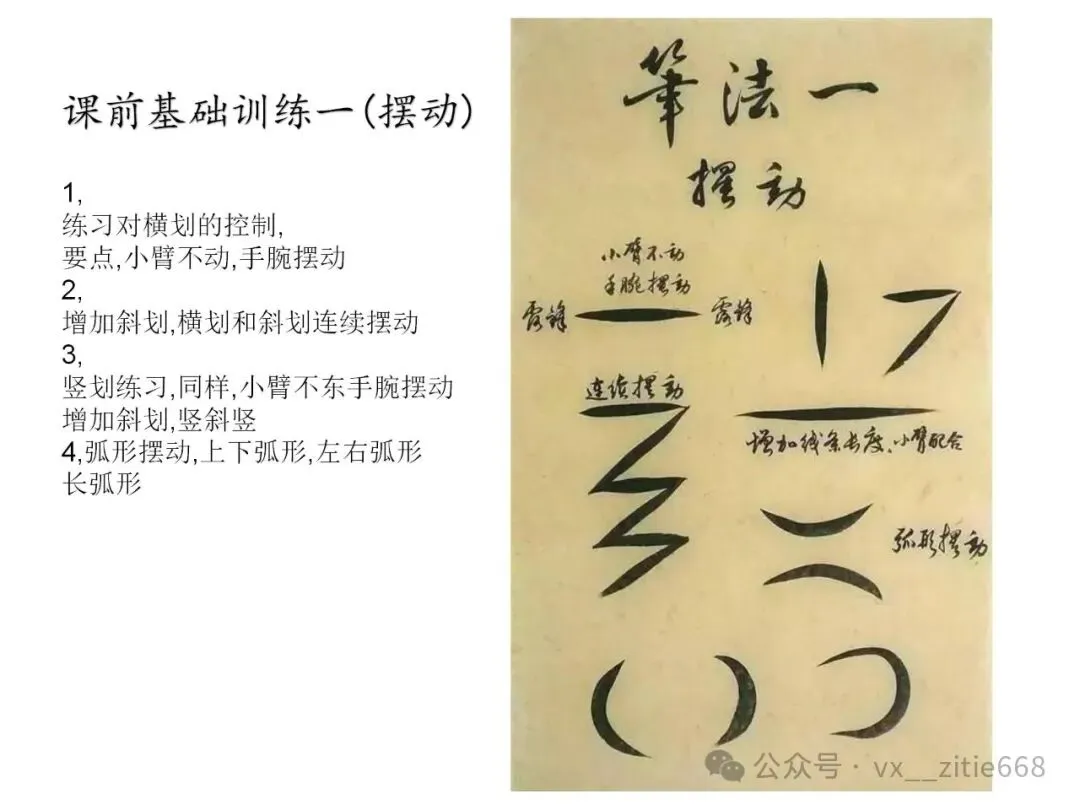 课前基础训练一(摆动)
1,
练习对横划的控制,
要点,小臂不动,手腕摆动
2,
增加斜划,横划和斜划连续摆动
3,
竖划练习,同样,小臂不东手腕摆动
增加斜划,竖斜竖
4,弧形摆动,上下弧形,左右弧形
长弧形
筆法一
擺動
小臂不动
手腕摆动
露锋
露锋
连续摆动
增加线条长度、小臂配合
弧形摆动
公众号·vx__zitie668